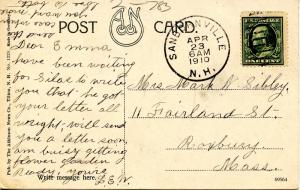 POST CARD
AN
763
SANBORNVILLE
APR
23
6AM
1910
N.H.
Dear Emma
have been waiting
for Silas to write
you that he got
your letter all
right - will send
you a letter soon
am busy getting
flower garden
ready, yours
L.E.W.
Mrs. Mark N. Sibley,
11 Fairland St.
Roxbury
Mass.
Write message here.
Pub by The Atkinson News Co., Tilton, N. H.